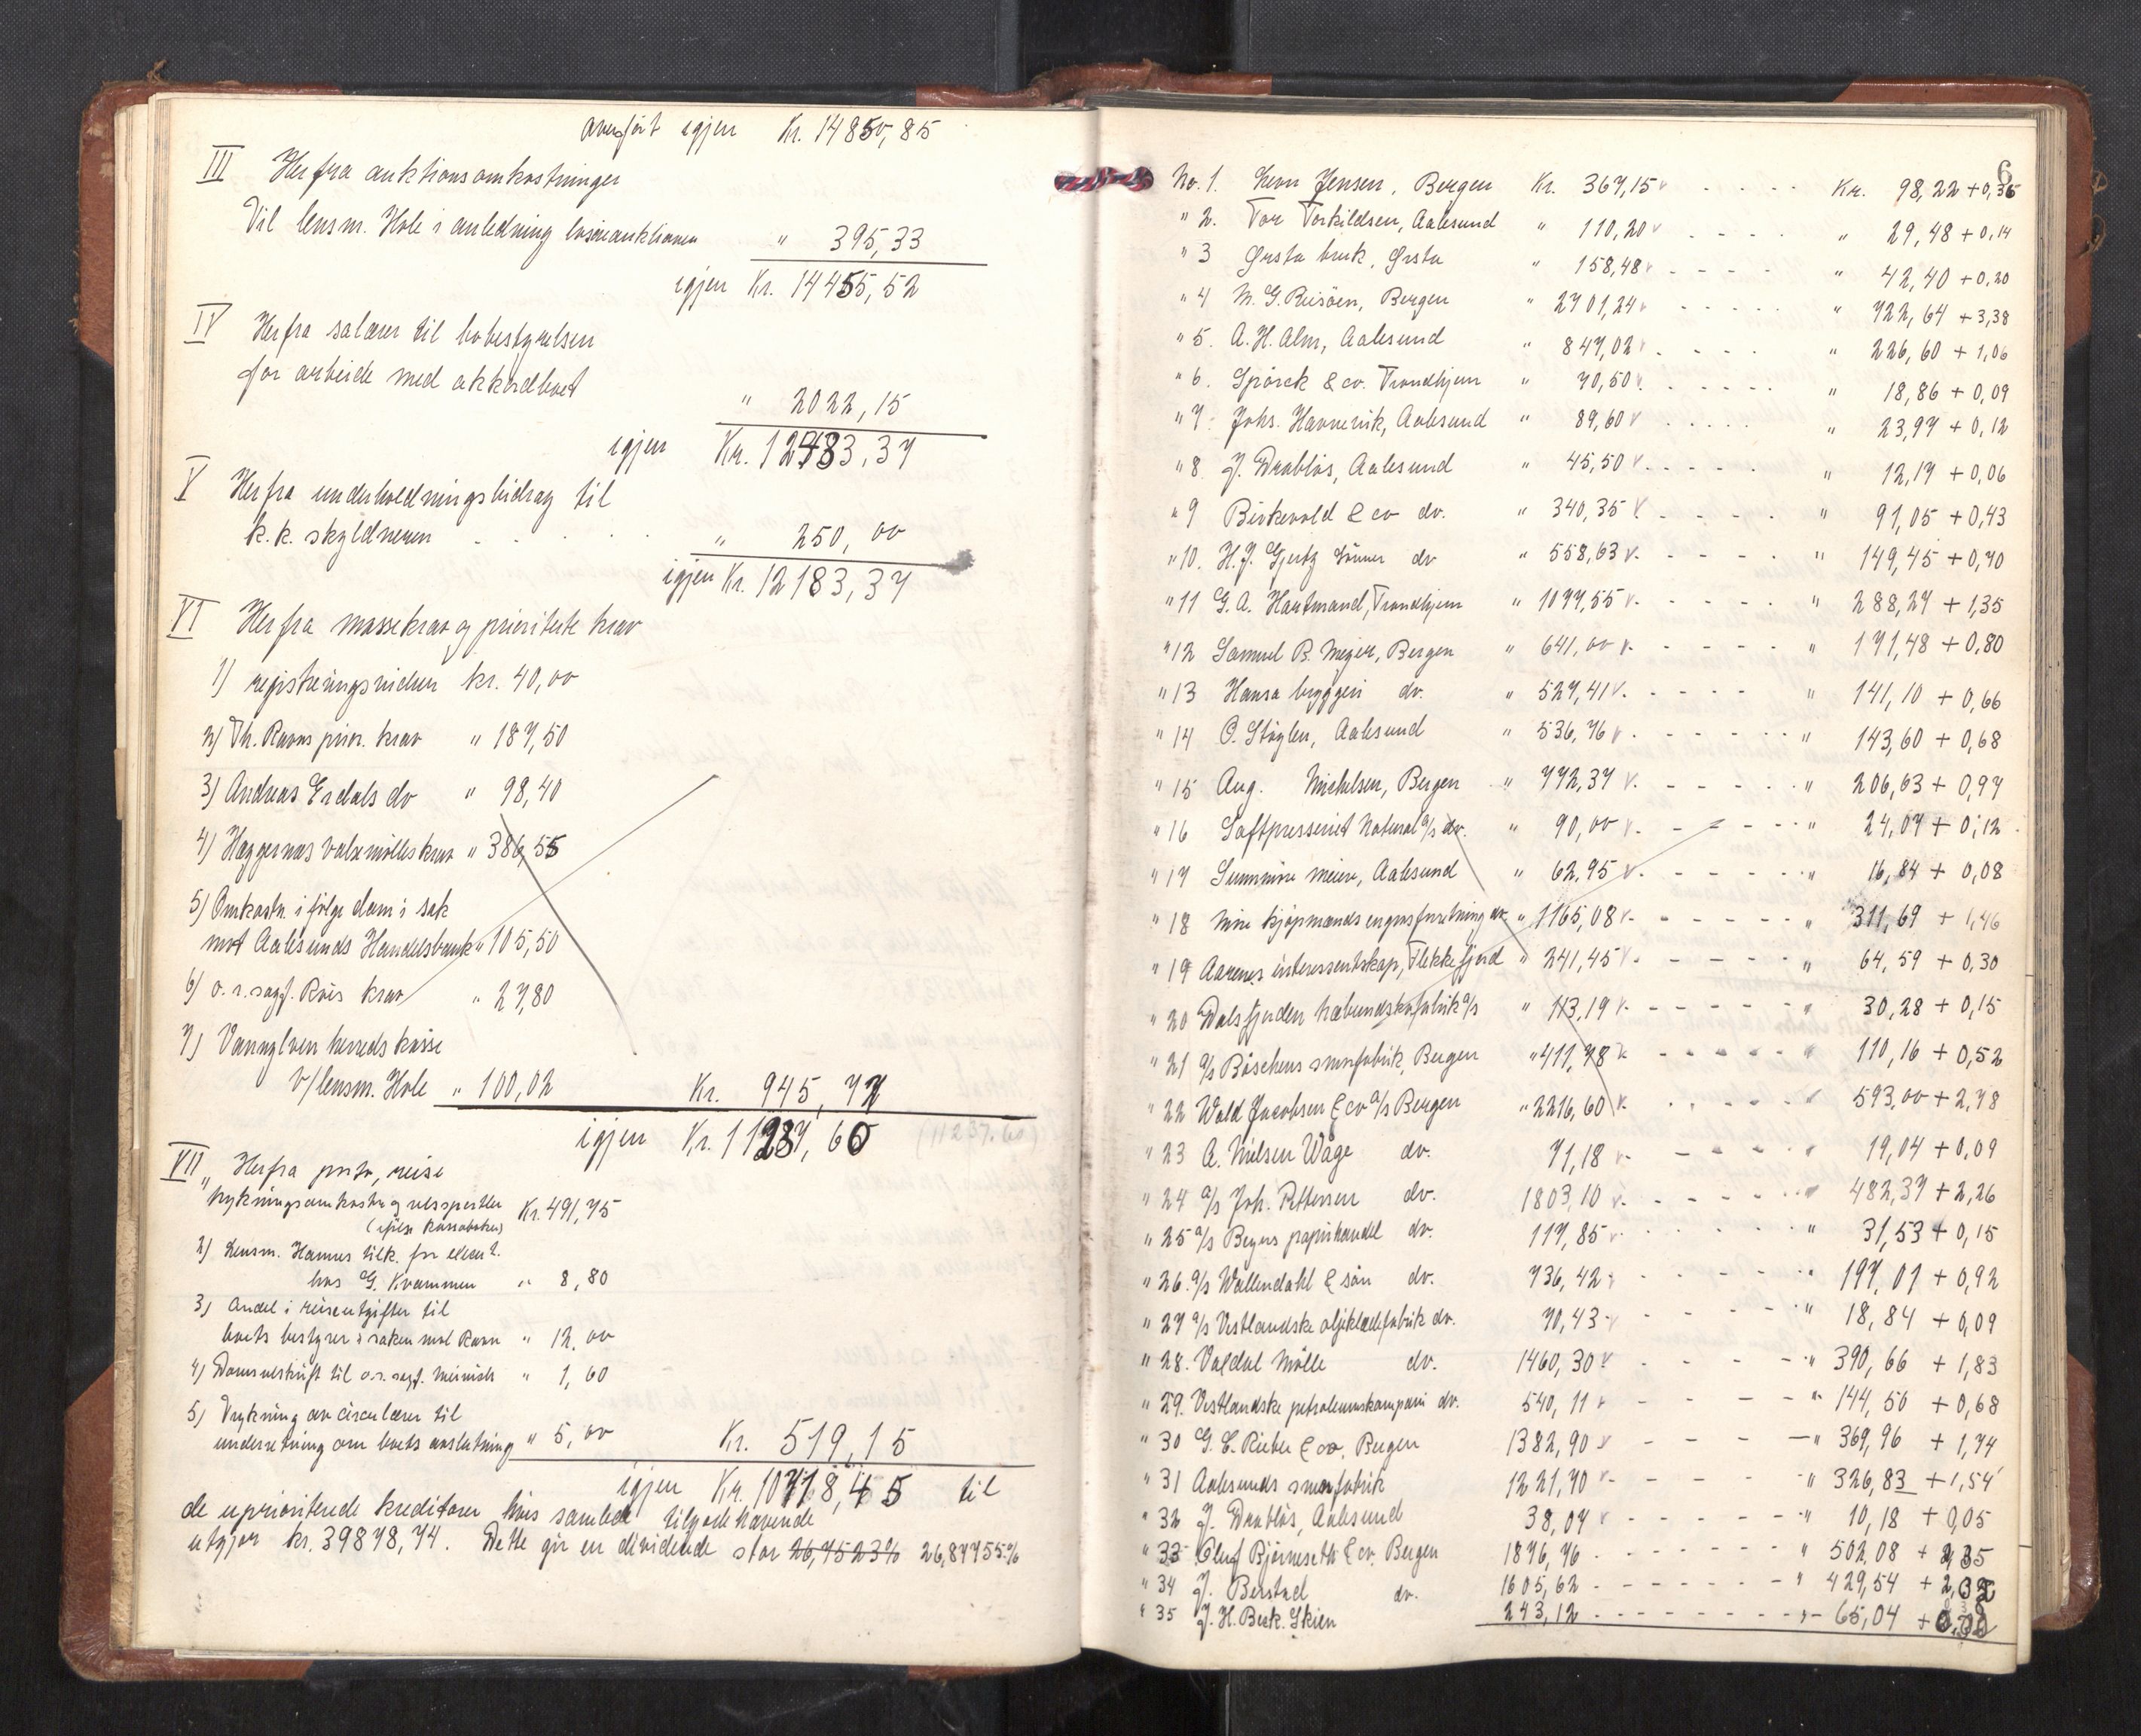 Overført igjen Kr. 14850,85
III Herfra auktionsomkostninger
Til lensm. Hole i anledning løsøreauktionen " 395,33
igjen Kr. 14455,52
IV Herfra salærer til bobestyrelsen
for arbeide med akkordboet
" 2022,15
igjen Kr. 12433,37
V Herfra underholdningsbidrag til
k.k. skyldneren " 250,00
igjen Kr. 12183,37
VI Herfra massekrav og prioriterte krav
1) registreringsvidnen kr. 40,00
2) Th. Ravns prior. krav " 187,50
3) Andreas Erdals do " 98,40
4) Hæggernæs valsemølles krav " 386,55
5) Omkostn. i følge dom i sak
mot Aalesunds Handelsbank " 105,50
6) o.r.sagf. Røis krav " 27,80
7) Vannylven herreds kasse
v/lensm. Hole " 100,02 Kr. 945,77
igjen Kr. 11237,60 (11237.60)
VII Herfra porto, reise
trykningsomkostn. og retssportler Kr. 491,75
(ifølge kassaboken)
2) Lensm. Hamres tilk. for
hos G. Kvammen " 8,80
3) Andel i reiseutgifter til
boets bestyrer i saken mot Ravn " 12,00
4) Domsutskrift til o.r.sagf. " 1,60
5) Trykning av circulærer til
underretning om boets avslutning " 5,00 Kr. 519,15
igjen Kr. 10718,45 til
de uprioriterede kreditorer hvis samlede tilgodehavende
utgjør kr. 39878,74. Dette gir en dividende stor 26,7523% 26,87755%
6
No. 1. Jensen, Bergen Kr. 367,15 Kr. 98,22 + 0,36
" 2. Tor Torkildsen, Aalesund " 110,20 " 29,48 + 0,14
" 3 Ørsta bruk, Ørsta " 158,48 " 42,40 + 0,20
" 4 M. G. Riisøen, Bergen " 2701,24 " 722,64 + 3,38
" 5. A. H. Alm, Aalesund " 847,02 " 226,60 + 1,06
" 6. Spørck & co. Trondhjem " 70,50 " 18,86 + 0,09
" 7 Johs. Havnevik, Aalesund " 89,60 " 23,97 + 0,12
" 8 J. Drabløs, Aalesund " 45,50 " 12,17 + 0,06
" 9 Birkevold & co do. " 340,35 " 91,05 + 0,43
" 10. H. J. Gjertz sønner do " 558,63 " 149,45 + 0,70
" 11 G. A. Hartmand, Trondhjem " 1077,55 " 288,27 + 1,35
" 12 Samuel B. Meyer, Bergen " 641,00 " 171,48 + 0,80
" 13 Hansa bryggeri do. " 527,41 " 141,10 + 0,66
" 14 O. Støylen, Aalesund " 536,76 " 143,60 + 0,68
" 15 Aug. Michelsen, Bergen " 772,37 " 206,63 + 0,97
" 16 Saftpresseriet Natural a/s do. " 90,00 " 24,07 + 0,12
" 17 Sunnmøre meieri, Aalesund " 62,95 " 16,84 + 0,08
" 18 Møre kjøpmænds engrosforretning do. " 1165,08 " 311,69 + 1,46
" 19 Aarenes interessentskap, Flekkefjord " 241,45 " 64,59 + 0,30
" 20 Dalsfjorden træbundskofabrik a/s " 113,19 " 30,28 + 0,15
" 21 a/s Bøschens smørfabrik, Bergen " 411,78 " 110,16 + 0,52
" 22 Wald. Jacobsen & co a/s Bergen " 2216,60 " 593,00 + 2,78
" 23 A. Nielsen Wåge do. 71,18 " 19,04 + 0,09
" 24 a/s Joh. Pettersen do. 1803,10 " 482,37 + 2,26
" 25 a/s Beyers papirhandel do. 117,85 " 31,53 + 0,15
" 26. a/s Wallendahl & søn do. 736,42 " 197,01 + 0,92
" 27 a/s Vestlandske oljeklædefabrik do. 70,43 " 18,84 + 0,09
" 28. Vaksdal Mølle do. 1460,30 " 390,66 + 1,83
" 29. Vestlandske petroleumskompani do. 540,11 " 144,50 + 0,68
" 30 G. C. Rieber & co. Bergen 1382,90 " 369,96 + 1,74
" 31 Aalesunds smørfabrik 1221,70 " 326,83 + 1,54
" 32 J. Drabløs, Aalesund 38,07 " 10,18 + 0,05
" 33 Oluf Bjørneseth & co. Bergen 1876,76 " 502,08 + 2,35
" 34 J. Berstad do. 1605,62 " 429,54 + 2,02
" 35 J. H. Beck. Skien 243,12 " 65,04